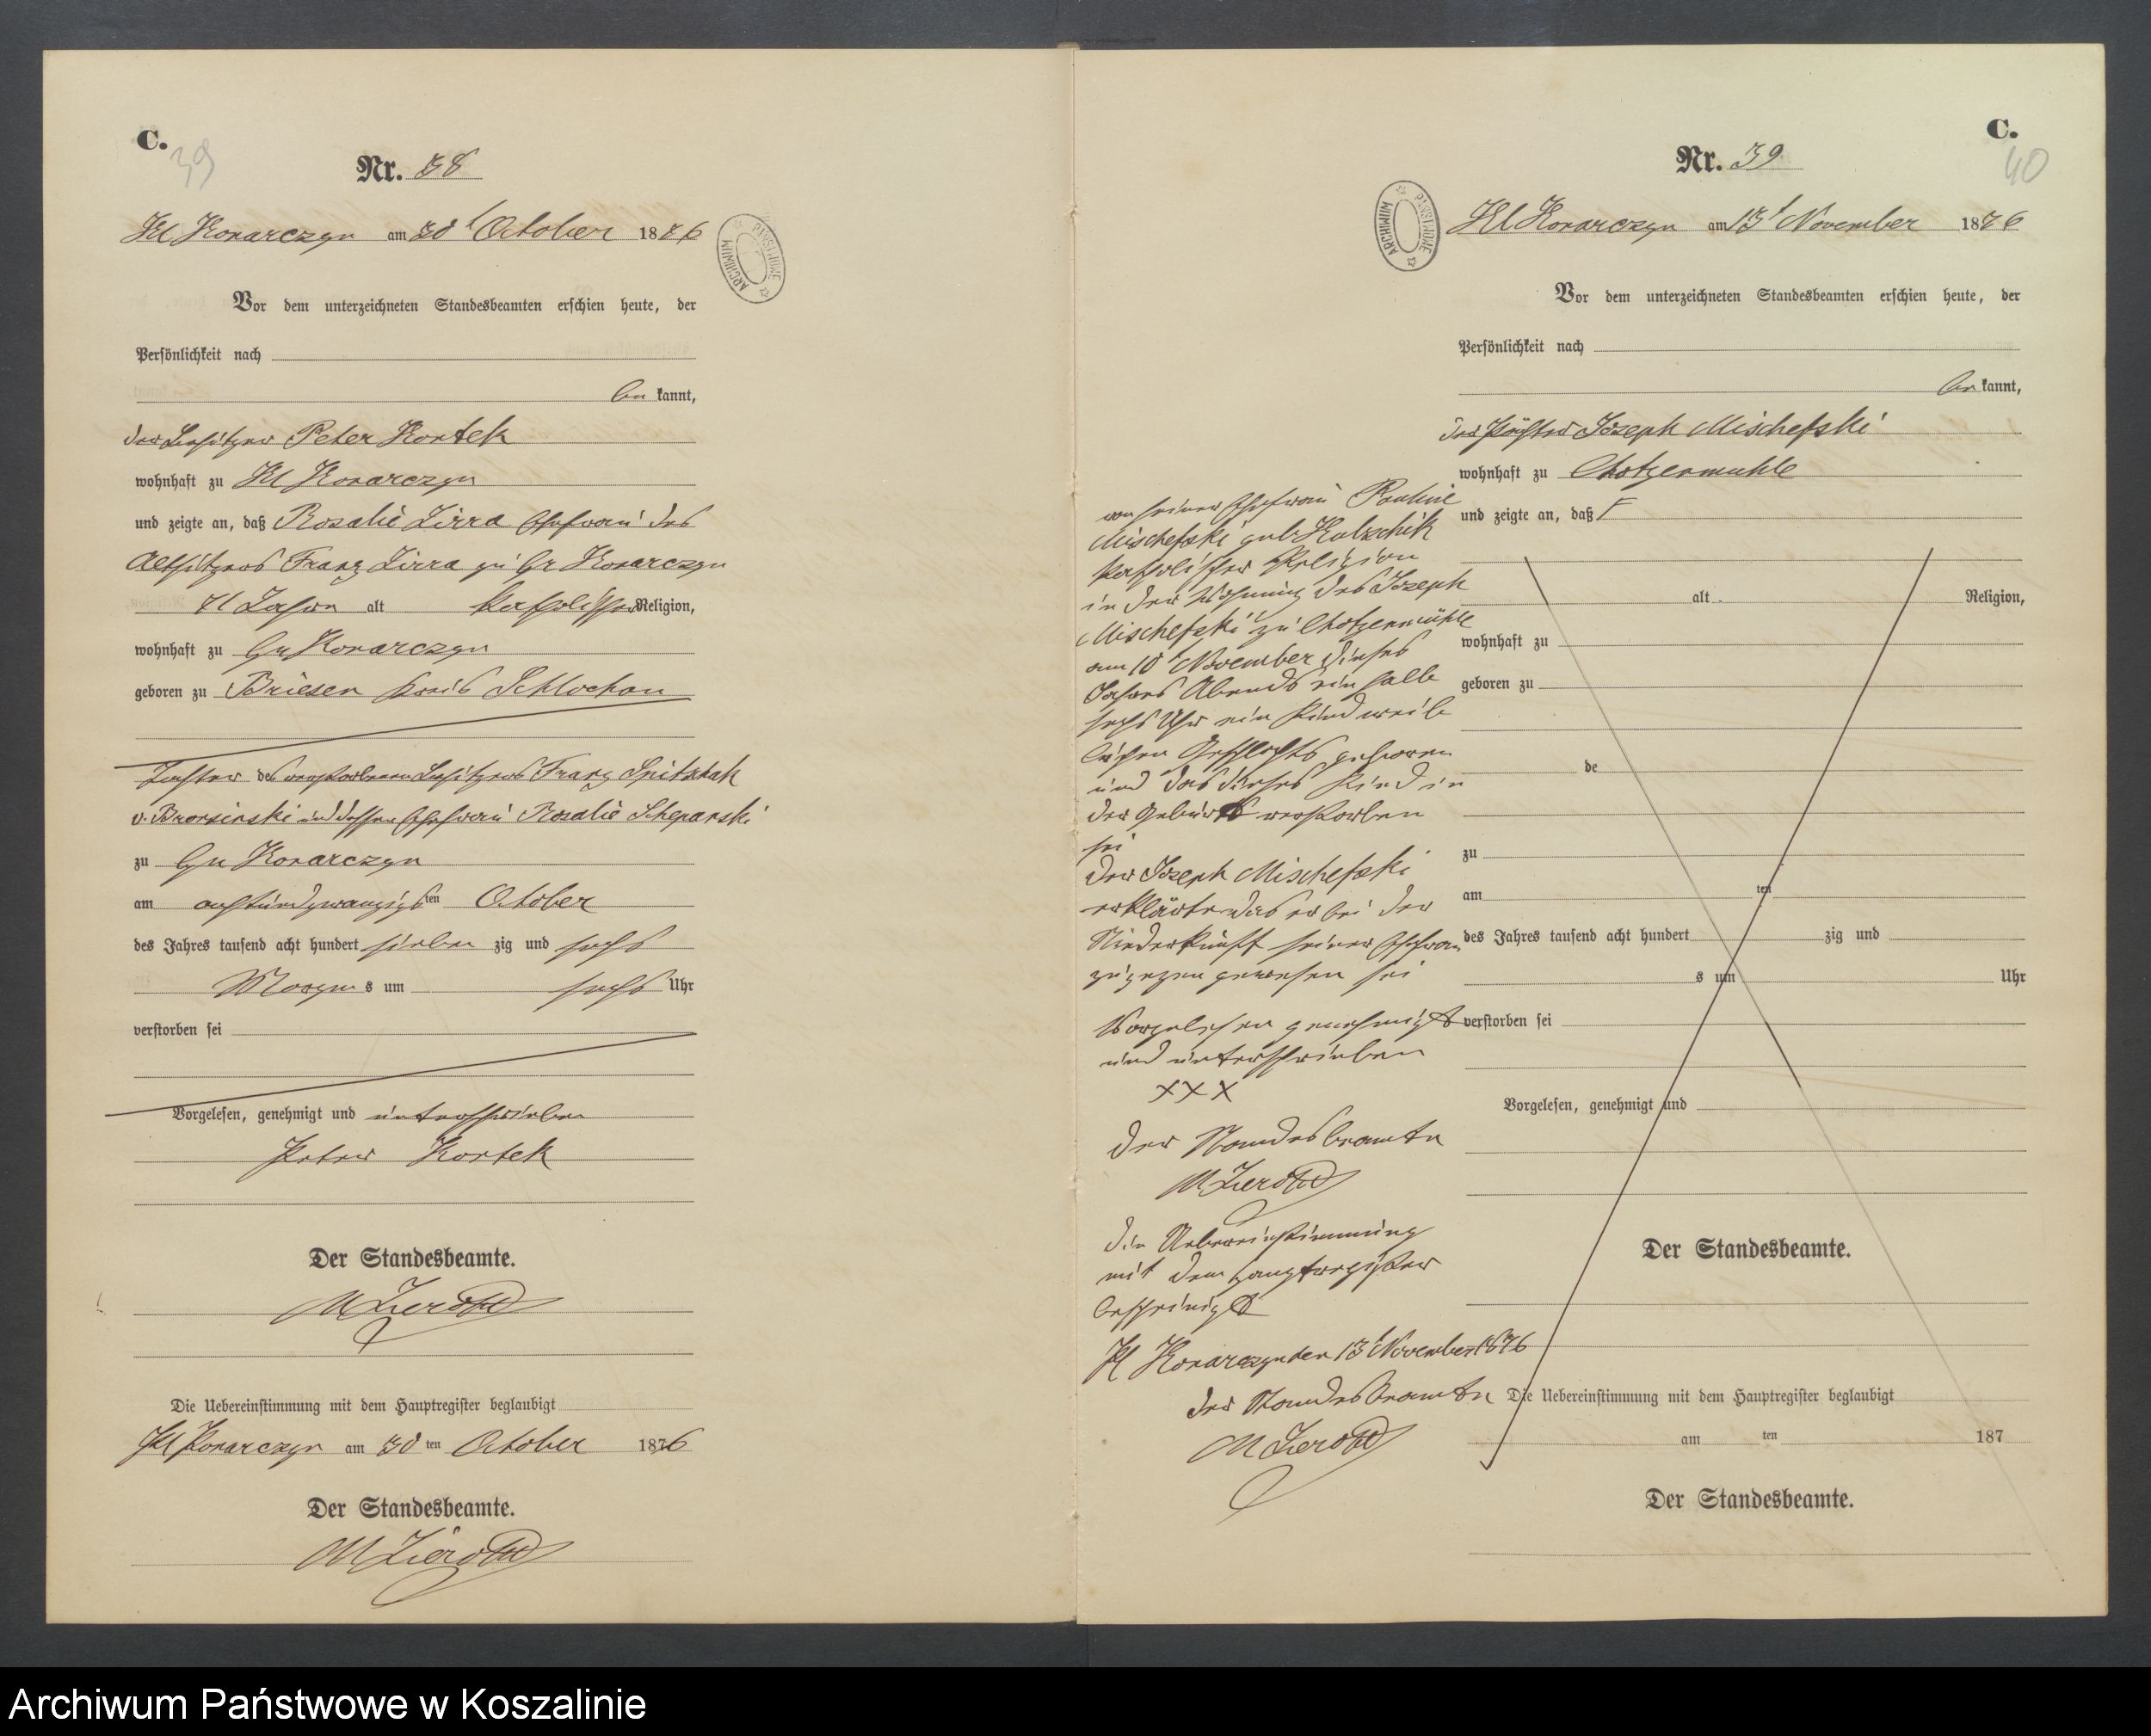 C.
39
Nr. 38
Kl Konarczyn am 30t October 1876
ARCHIWUM PAŃSTWOWE
Vor dem unterzeichneten Standesbeamten erschien heute, der
Persönlichkeit nach
be kannt,
der Besitzer Peter Kortek
wohnhaft zu Kl Konarczyn
und zeigte an, daß Rosalie Zirra Ehefrau des
Altsitzers Franz Zirra zu Gr Konarczyn
71 Jahre alt katholischer Religion,
wohnhaft zu Gr Konarczyn
geboren zu Briesen Kreis Schlochau
Tochter des verstorbenen Besitzers Franz Spitzkak
v. Brorsinski und dessen Ehefrau Rosalie Scheparski
zu Gr Konarczyn
am achtundzwanzigsten October
des Jahres tausend acht hundert sieben zig und sechs
Morgens um sechs Uhr
verstorben sei
Vorgelesen, genehmigt und unterschrieben
Peter Kortek
Der Standesbeamte.
Die Uebereinstimmung mit dem Hauptregister beglaubigt
Kl Konarczyn am 30 ten October 1876
Der Standesbeamte.
C.
40
Nr. 39
ARCHIWUM PAŃSTWOWE
Kl Konarczyn am 13t November 1876
Vor dem unterzeichneten Standesbeamten erschien heute, der
Persönlichkeit nach
be kannt,
der Pächter Joseph Mischefski
wohnhaft zu Chotzenmuhle
und zeigte an, daß F
alt Religion,
wohnhaft zu
geboren zu
de
zu
am ten
des Jahres tausend acht hundert zig und
s um Uhr
verstorben sei
Vorgelesen, genehmigt und
Der Standesbeamte.
Die Uebereinstimmung mit dem Hauptregister beglaubigt
am ten 187
Der Standesbeamte.
von seiner Ehefrau Pauline
Mischefski geb. Kulzschik
katholischer Religion
in der Wohnung des Joseph
Mischefski zu Chotzenmühle
am 10t November dieses
Jahres Abends ein halb
sechs Uhr ein Kind weib
lichen Geschlechts geboren
und das dieses Kind in
der Geburt verstorben
sei
Der Joseph Mischefski
erklärte das er bei der
Niederkunft seiner Ehefrau
zugegen gewesen sei
Vorgelesen genehmigt
und unterschrieben
XXX
Der Standesbeamte
Die Uebereinstimmung
mit dem Hauptregister
bescheinigt
Kl Konarczyn den 13t November 1876
Der Standesbeamte
Archiwum Państwowe w Koszalinie